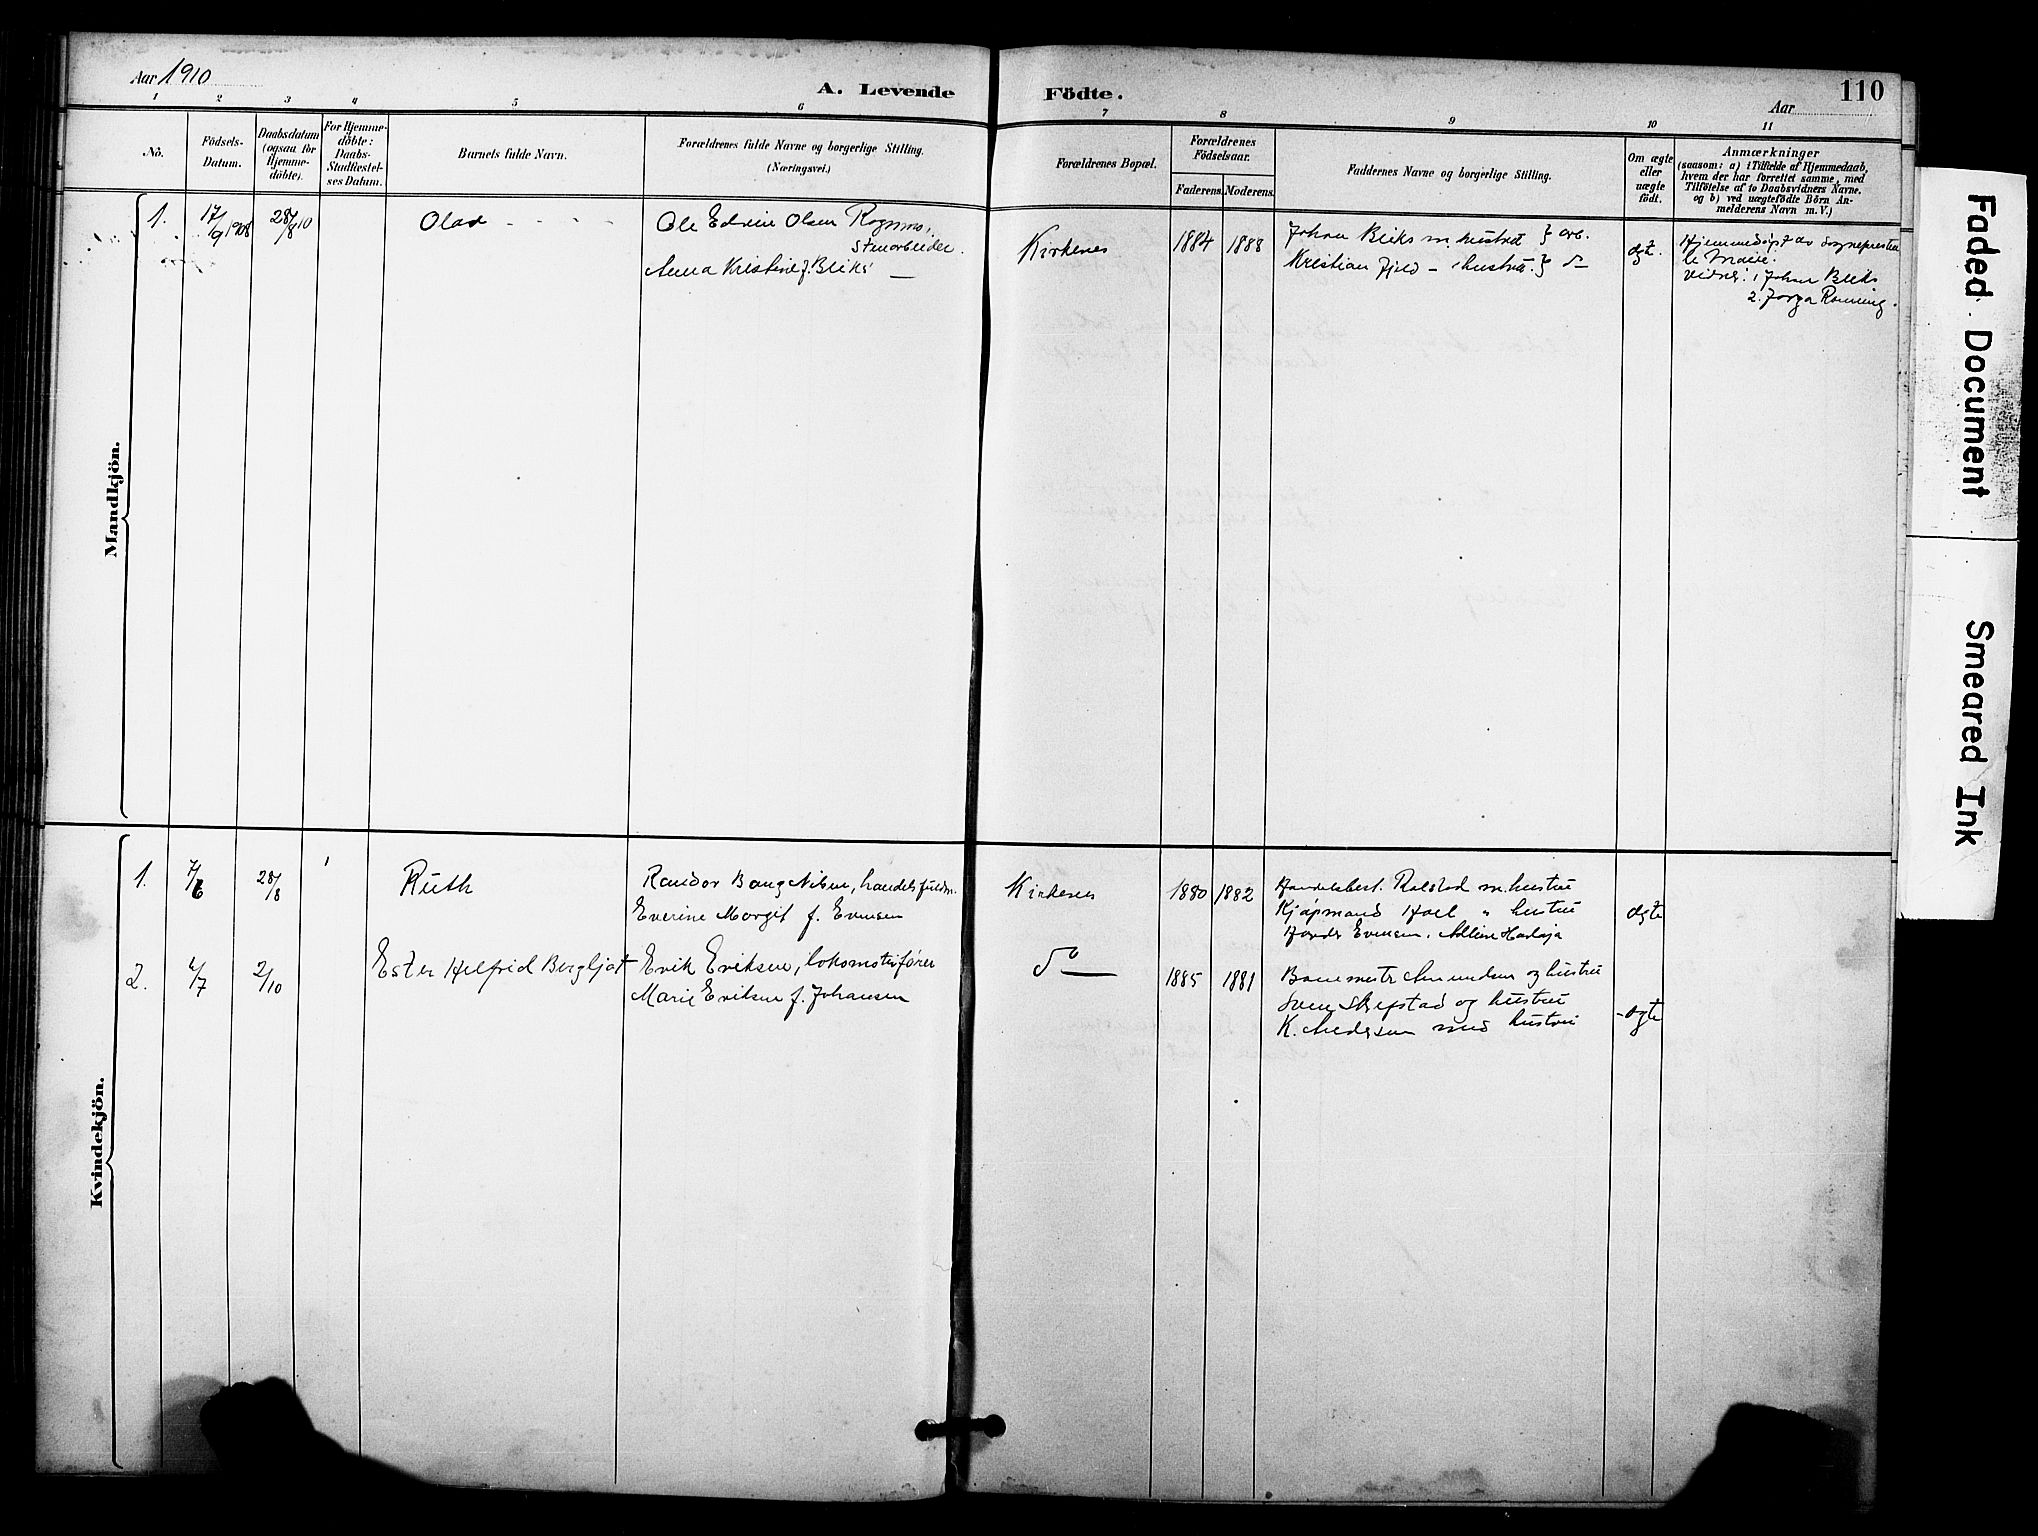 Aar 1910
A. Levende Födte.
Aar
110
1 2 3 4 5 6 7 8 9 10 11
No.
Födsels-
Datum.
Daabsdatum
(ogsaa for
Hjemme-
döbte).
For Hjemme-
döbte:
Daabs-
Stadfæstel-
ses Datum.
Barnets fulde Navn.
Forældrenes fulde Navne og borgerlige Stilling.
(Næringsvei.)
Forældrenes Bopæl.
Forældrenes
Födselsaar.
Faderens. Moderens.
Faddernes Navne og borgerlige Stilling.
Om ægte
eller
uægte
födt.
Anmærkninger
(saasom: a) i Tilfælde af Hjemmedaab,
hvem der har forrettet samme, med
Tilföielse af to Daabsvidners Navne.
og b) ved uægtefödte Börn An-
melderens Navn m. V.)
Mandkjön.
1. 17/9 1908 28/8 10 Olav
Ole Edvin Olsen Rognmo,
stenarbeider.
Anna Kristine f. Bliks —
Kirkenes 1884 1888
Johan Bliks m. hustru } arb.
Kristian Fjeld — hustru } do
egt.
Hjemmedøpt av sognepresten
le Maire.
Vidner: 1 Johan Bliks
2. Jørga Rønning.
Kvindekjön.
1. 7/6 28/8 Ruth
Randor Bang Nilsen, handelsfuldm.
Everine Margit f. Evensen
Kirkenes 1880 1882
Handelsbest. Rolstad m. hustru
Kjøpmand Hoel " hustru
Evensen.
egte
2. 4/7 2/10 Ester Helfrid Bergljot
Erik Eriksen, lokomotivfører
Marie Eriksen f. Johansen
do 1885 1881
Banemestr Amundsen og hustru
Sven Skjefstad og hustru
K. Andersen med hustru
egte
Faded Document
Smeared Ink